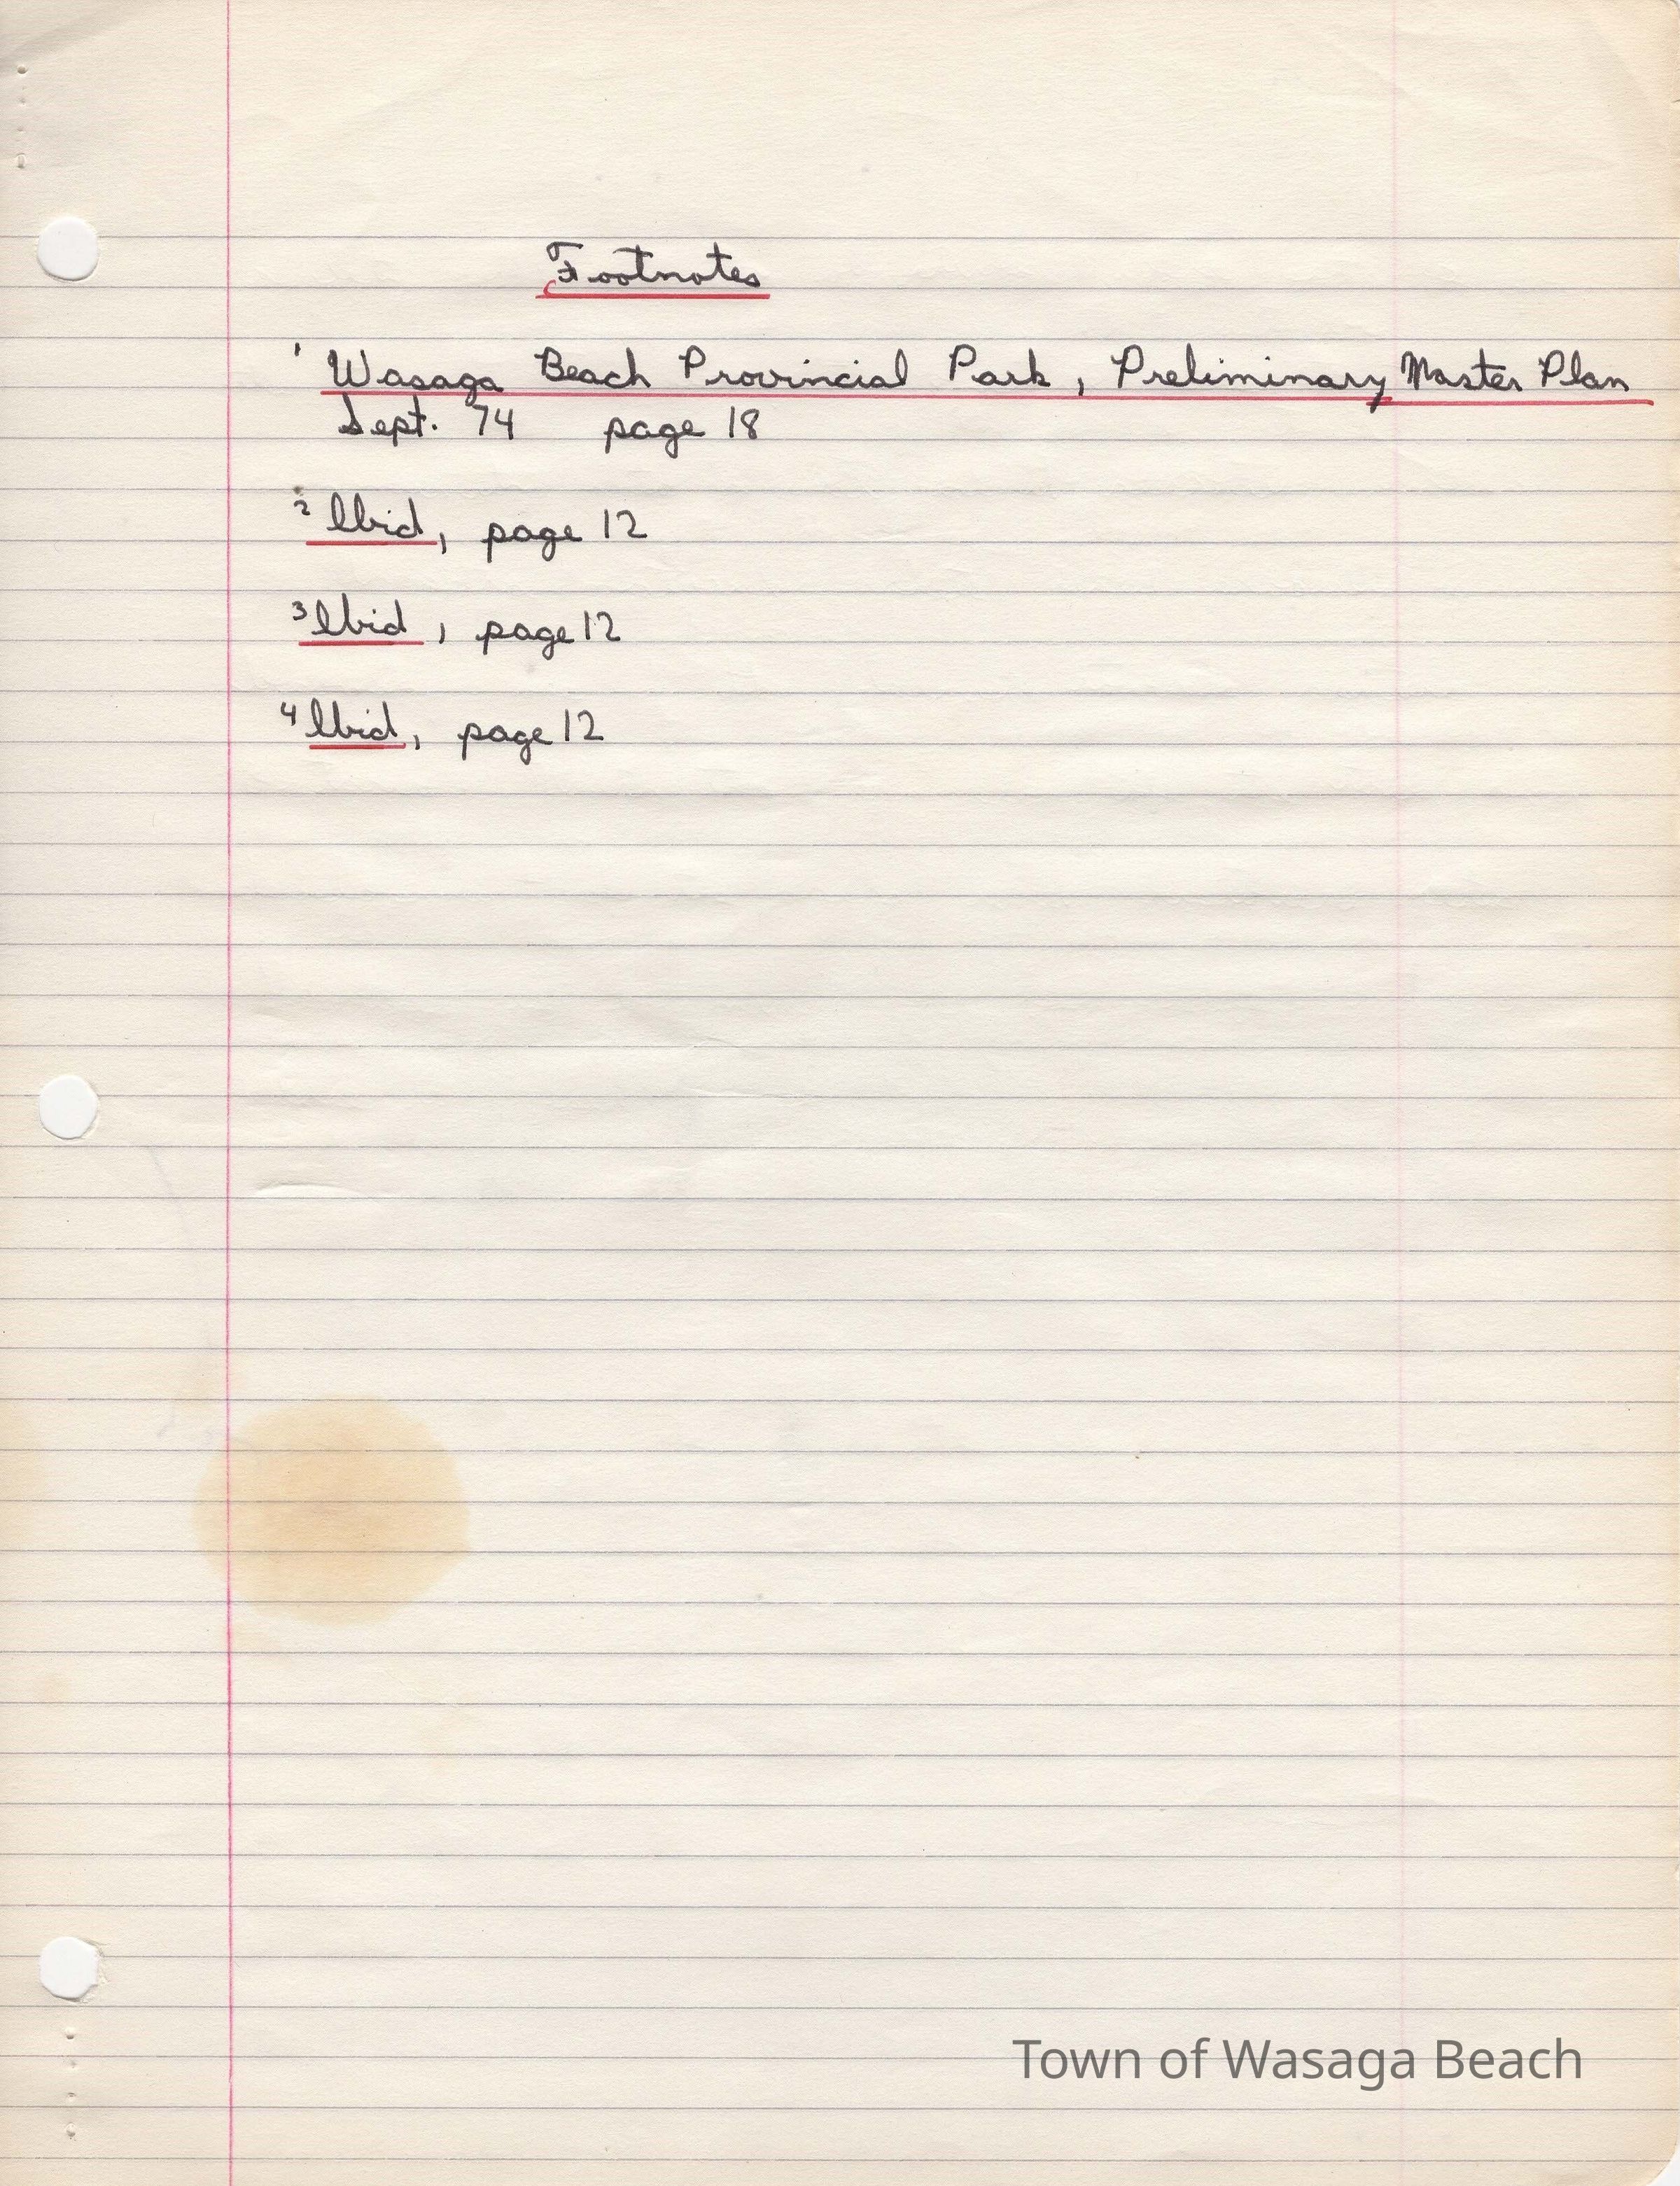 Footnotes
¹ Wasaga Beach Provincial Park, Preliminary Master Plan
Sept. 74 page 18
² Ibid, page 12
³ Ibid, page 12
⁴ Ibid, page 12
Town of Wasaga Beach